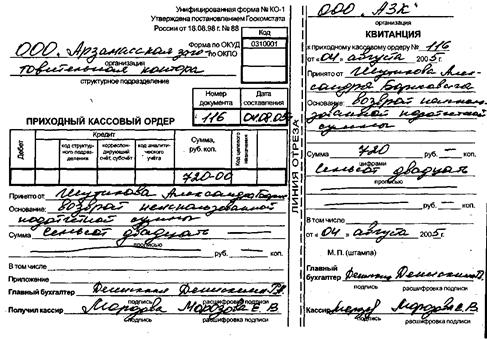 Унифицированная форма № КО-1
Утверждена постановлением Госкомстата
России от 18.08.98 г. № 88
Код
Форма по ОКУД 0310001
по ОКПО
ООО. Арзамасская заго-
организация
товительная контора
структурное подразделение
Номер документа
Дата составления
116
04.08.05
ПРИХОДНЫЙ КАССОВЫЙ ОРДЕР
Дебет
Кредит
Сумма, руб. коп.
Код целевого назначения
код структур. подразделения
корреспондирующий счёт, субсчёт
код аналитического учёта
720-00
Принято от Шурикова Александра Бори
Основание: возврат неиспользованной
подотчётной суммы
Сумма семьсот двадцать
прописью
руб. – коп.
В том числе
Приложение
Главный бухгалтер
подпись
расшифровка подписи
Получил кассир Морозова Е. В.
подпись
расшифровка подписи
ЛИНИЯ ОТРЕЗА
ООО "АЗК"
организация
КВИТАНЦИЯ
к приходному кассовому ордеру № 116
от «04» августа 2005г.
Принято от Шурикова Алек-
сандра Борисовича
Основание: возврат неисполь-
зованной подотчётной
суммы
720 –
цифрами
семьсот двадцать
прописью
руб. – коп.
В том числе
от «04» августа 2005г.
М. П. (штампа)
Главный
бухгалтер
подпись
расшифровка подписи
Кассир Морозова Е. В.
подпись
расшифровка подписи